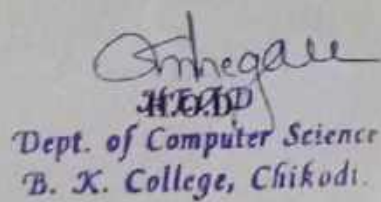 HOD
Dept. of Computer Science
B. K. College, Chikodi.